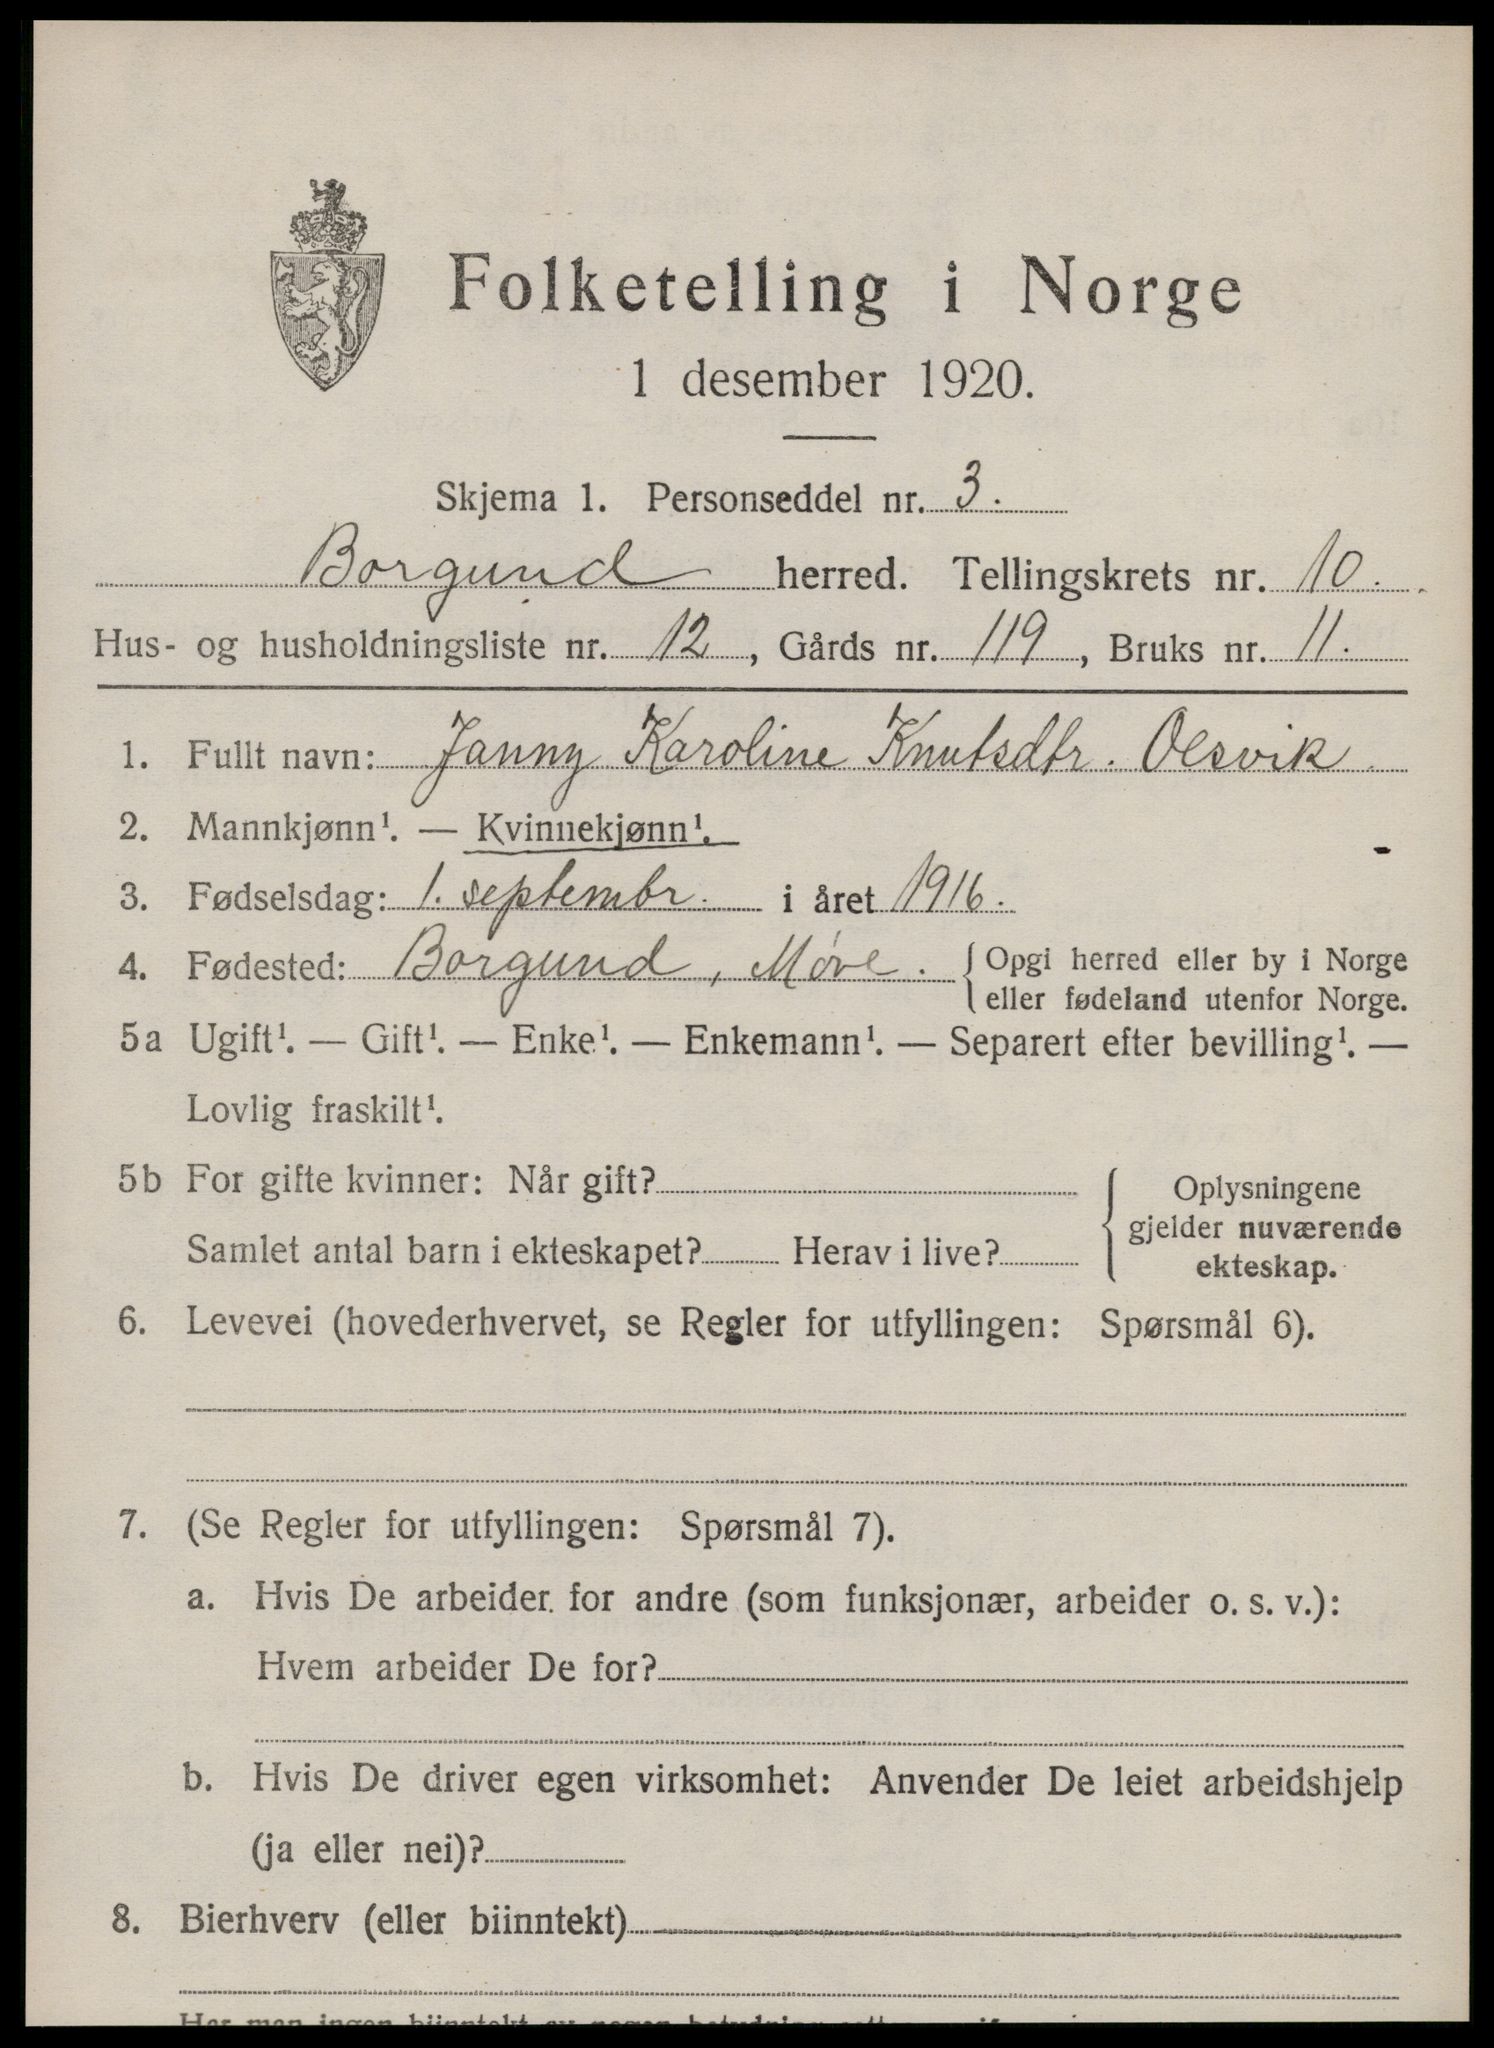 Folketelling i Norge
1 desember 1920.
Skjema 1. Personseddel nr. 3.
Borgund herred. Tellingskrets nr. 10.
Hus- og husholdningsliste nr. 12, Gårds nr. 119, Bruks nr. 11.
1. Fullt navn: Janny Karoline Knutsdtr. Olsvik.
2. Mannkjønn¹. — Kvinnekjønn¹.
3. Fødselsdag: 1. septembr. i året 1916.
4. Fødested: Borgund, Møre. { Opgi herred eller by i Norge
eller fødeland utenfor Norge.
5a Ugift¹. — Gift¹. — Enke¹. — Enkemann¹. — Separert efter bevilling¹. —
Lovlig fraskilt¹.
5b For gifte kvinner: Når gift?
Samlet antal barn i ekteskapet? Herav i live?
{ Oplysningene
gjelder nuværende
ekteskap.
6. Levevei (hovederhvervet, se Regler for utfyllingen: Spørsmål 6).
7. (Se Regler for utfyllingen: Spørsmål 7).
a. Hvis De arbeider for andre (som funksjonær, arbeider o. s. v.):
Hvem arbeider De for?
b. Hvis De driver egen virksomhet: Anvender De leiet arbeidshjelp
(ja eller nei)?
8. Bierhverv (eller biinntekt)